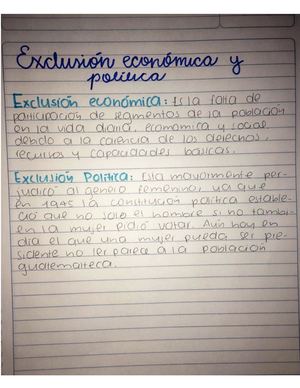 Exclusión económica y
política
Exclusión económica: Es la falta de
participación de segmentos de la población
en la vida diaria, economica y social
debido a la carencia de los derechos,
recursos y capacidades básicas.
Exclusión Política: Esta mayormente per-
judicó al genero femenino, ya que
en 1945 la constitución política estable-
ció que no solo el hombre si no tambi-
en la mujer podía votar. Aún hoy en
dia el que una mujer pueda ser pre-
sidente no les parece a la población
guatemalteca.